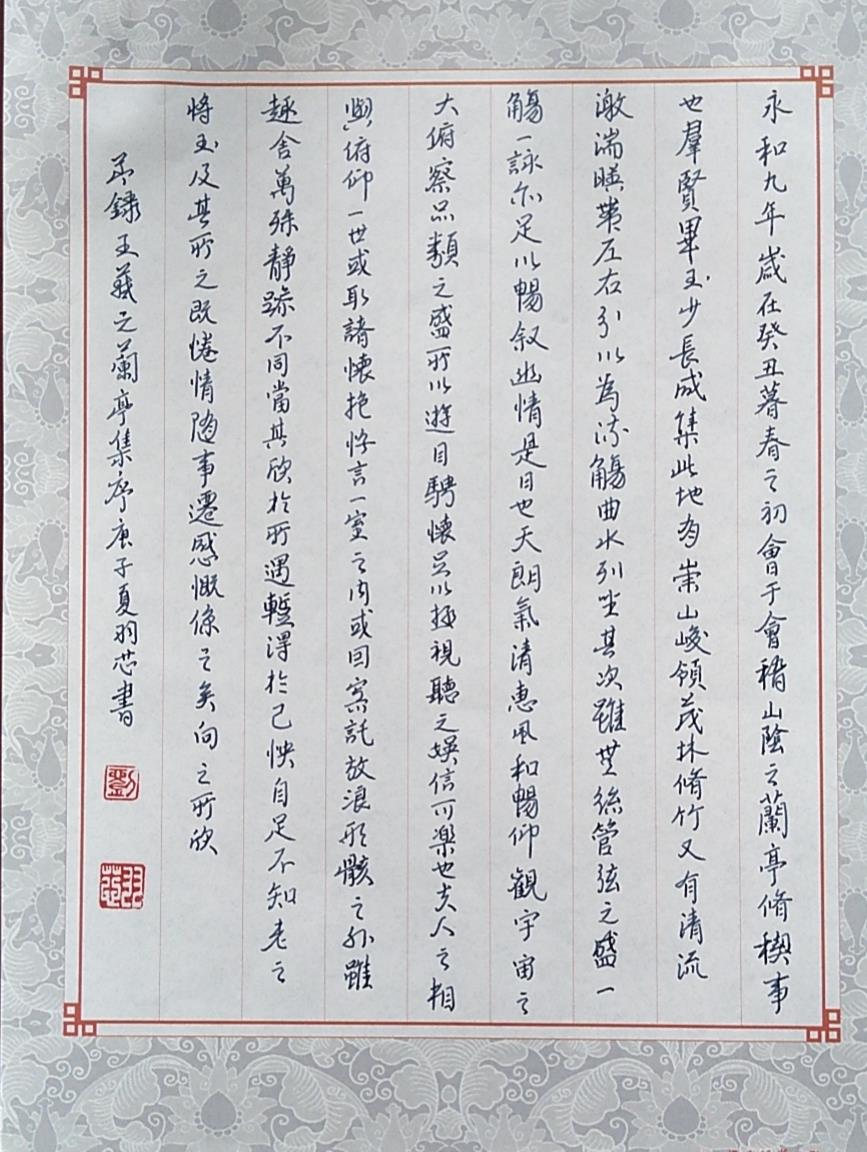 永和九年歲在癸丑暮春之初會于會稽山陰之蘭亭脩稧事
也羣賢畢至少長咸集此地有崇山峻領茂林脩竹又有清流
激湍暎帶左右引以為流觴曲水列坐其次雖無絲管弦之盛一
觴一詠亦足以暢叙幽情是日也天朗氣清惠風和暢仰觀宇宙之
大俯察品類之盛所以遊目騁懷足以極視聽之娛信可樂也夫人之相
與俯仰一世或取諸懷抱悟言一室之內或因寄託放浪形骸之外雖
趣舍萬殊靜躁不同當其欣於所遇蹔得於己怏自足不知老之
將至及其所之既惓情隨事遷感慨係之矣向之所欣
節錄王羲之蘭亭集序庚子夏羽芯書
劉
羽芯